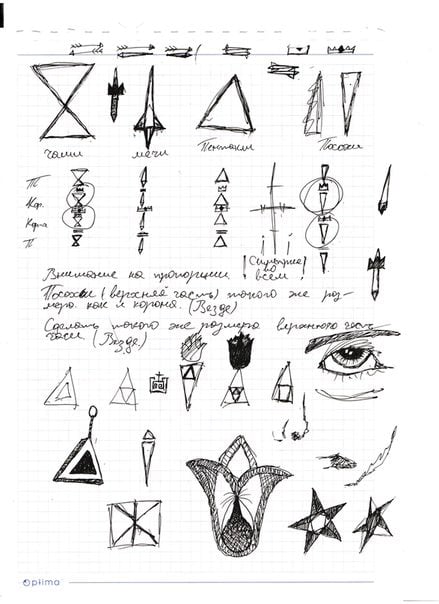 Чаши мечи Пентакли Посохи
Т
Кор.
Корта
П
Симетрия
во
всем!
Внимание на пропорции
Посохи (верхней часть) такого же раз-
мера как и корона. (Везде)
Сделать такого же размера верхнюю часть
чаши (Везде)
Optima